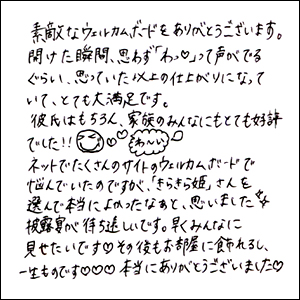 素敵なウェルカムボードをありがとうございます。
開けた瞬間、思わず「わっ♡」って声がでる
ぐらい、思っていた以上の仕上がりになって
いて、とても大満足です。
彼氏はもちろん、家族のみんなにもとても好評
でした!! わ〜い
ネットでたくさんのサイトのウェルカムボードで
悩んでいたのですが、「きらきら姫」さんを
選んで本当によかったなぁと、思いました
披露宴が待ち遠しいです。早くみんなに
見せたいです♡その後もお部屋に飾れるし、
一生ものです♡♡♡ 本当にありがとうございました♡